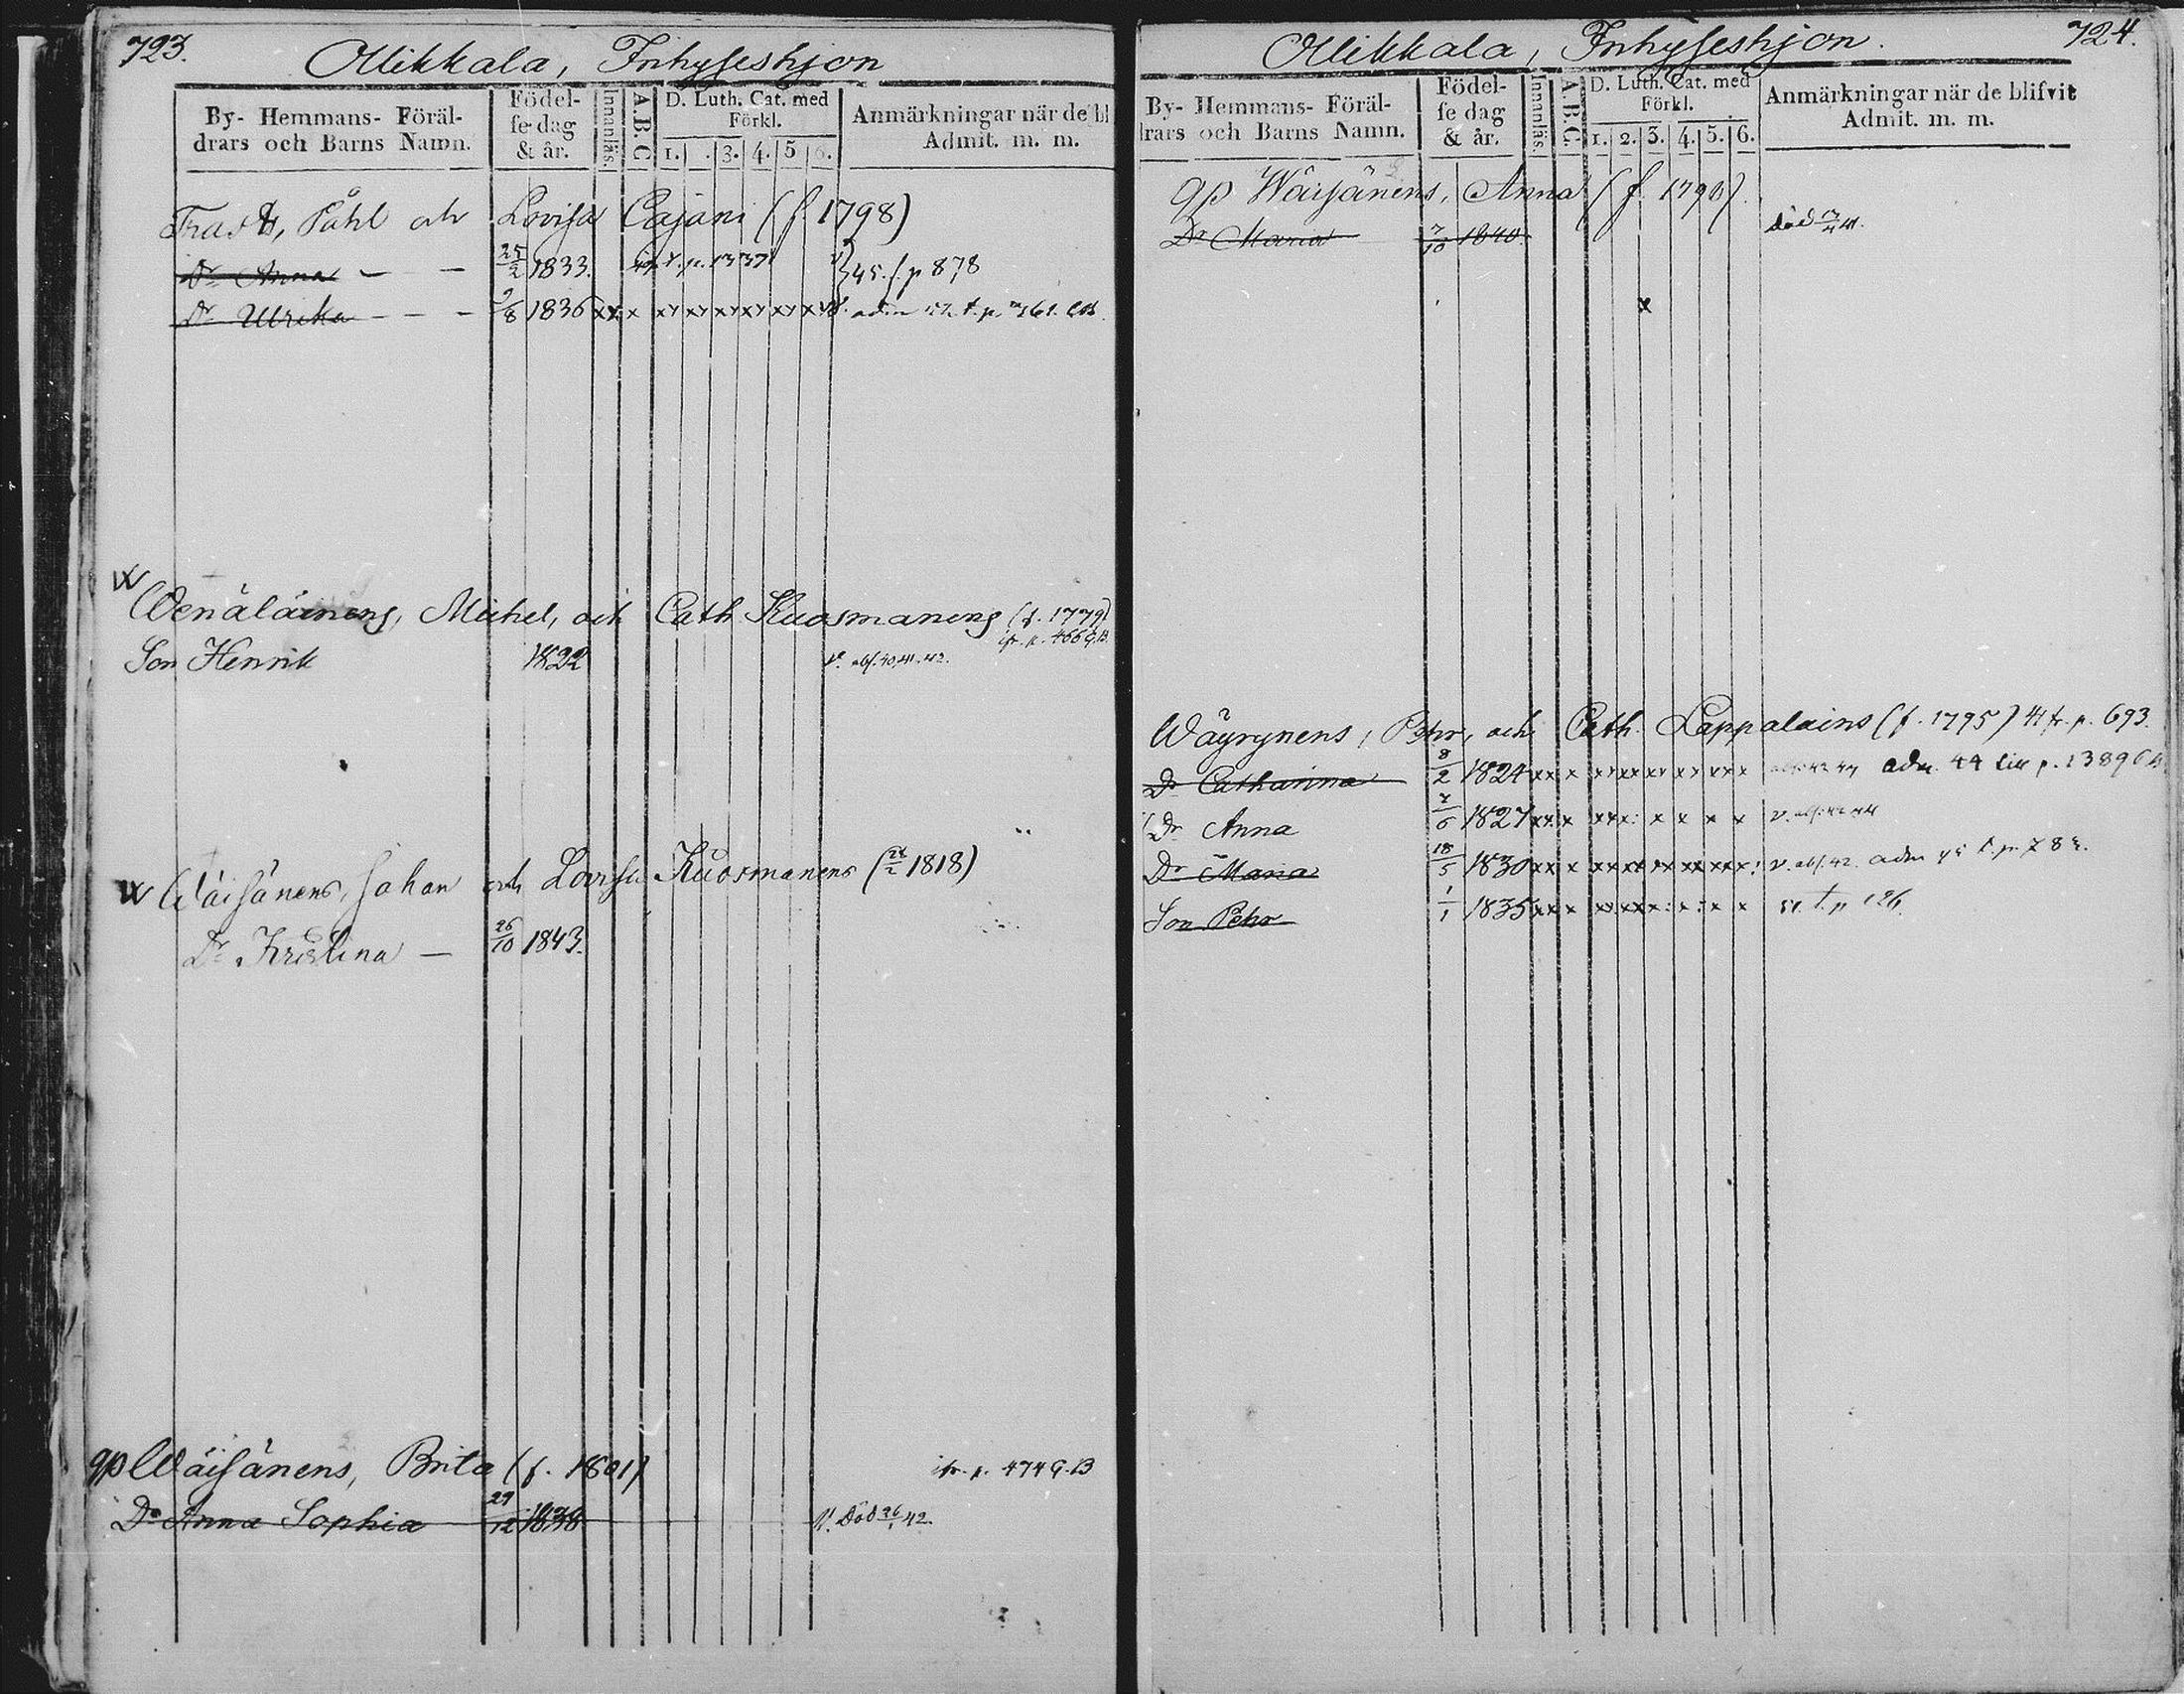 723.
Ollikkala, Inhyseshjon
By- Hemmans- Föräl-
drars och Barns Namn.
Födel-
se dag
& år.
Innanläs.
A.B.C
D. Luth. Cat. med
Förkl.
1. . 3. 4. 5 6.
Anmärkningar när de bl
Admit. m. m.
Trast, Påhl och Lovisa Cajani (f. 1798)
Dr Anna — — 25/2 1833. t. p. 1337 45. f. p 878
Dr Ulrika - - - 9/8 1836 xx x xx xx xx xx xx xx adm t. p.
Wenäläinens, Michel, och Cath Kuosmanens (f. 1779)
ifr. p. 466 G.B.
Son Henrik 1822 v. abs. 40, 41. 42.
Wäisänens, Johan och Lovisa Kuosmanens (24/2 1818)
Dr Kristina — 26/10 1843.
qp Wäisänens, Brita (f. 1801) ifr. p. 474 G.B
Dr Anna Sophia 29/12 1838 V. Död 26/1 42.
724.
Ollikkala, Inhyseshjon.
By- Hemmans- Föräl-
drars och Barns Namn.
Födel-
se dag
& år.
Innanläs.
A.B.C.
D. Luth. Cat. med
Förkl.
1. 2. 3. 4. 5. 6.
Anmärkningar när de blifvit
Admit. m. m.
qp Wäisänens, Anna (f. 1790).
Dr Maria 7/10 1840. död 41.
x
Wäyrynens, Pehr, och Cath. Lappalains (f. 1795) 41 fr. p. 693.
Dr Catharina 8/2 1824 xx x xx xx xx xx xx x adm. 44
Dr Anna 7/6 1827 xx x xxx: x x x x v. abs. 42 44
Dr Maria 18/5 1830 xx x xx xx xx xx xx x: v. abs. 42. adm 45 t. p.
Son Pehr 1/1 1835 xx x xx xx x: x: x x t. p 126.